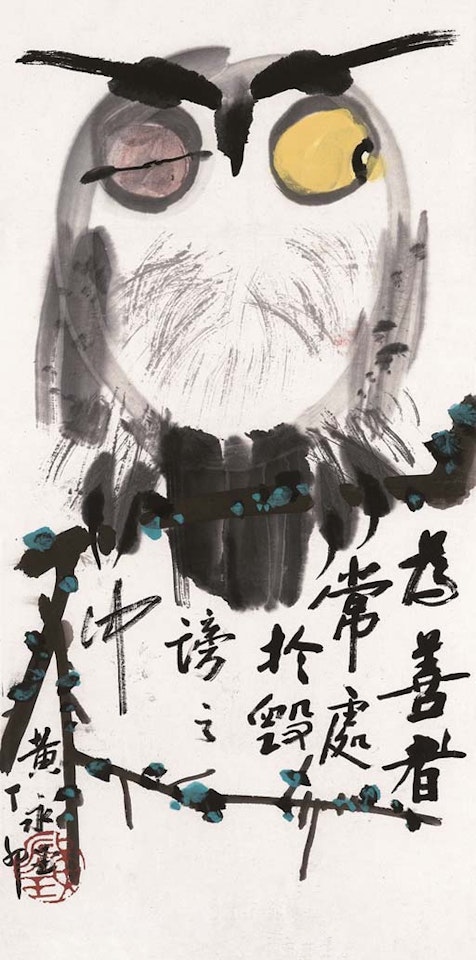 為善者
常處
於毀
謗之
中
黃永玉
丁卯